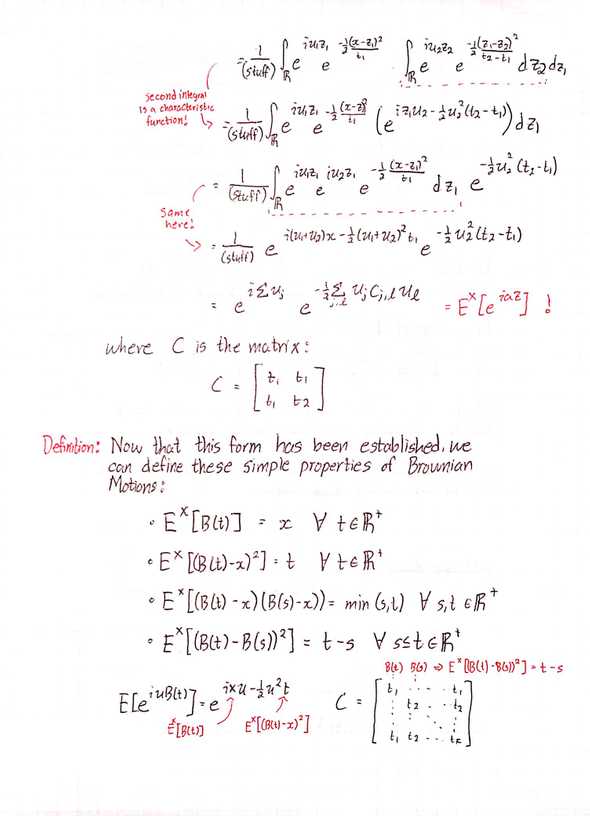 = 1/(stuff) ∫_ℝ e^{iu₁z₁} e^{-½(x-z₁)²/t₁} ∫_ℝ e^{iu₂z₂} e^{-½(z₁-z₂)²/(t₂-t₁)} dz₂dz₁
second integral
is a characteristic
function!
= 1/(stuff) ∫_ℝ e^{iu₁z₁} e^{-½(x-z₁)²/t₁} (e^{iz₁u₂-½u₂²(t₂-t₁)}) dz₁
= 1/(stuff) ∫_ℝ e^{iu₁z₁} e^{iu₂z₁} e^{-½(x-z₁)²/t₁} dz₁ e^{-½u₂²(t₂-t₁)}
Same
here!
= 1/(stuff) e^{i(u₁+u₂)x-½(u₁+u₂)²t₁} e^{-½u₂²(t₂-t₁)}
= e^{iΣu_j} e^{-½Σ_{j,l} u_j C_{j,l} u_l} = E^x[e^{iaZ}] !
where C is the matrix:
C = [t₁ t₁
t₁ t₂]
Definition: Now that this form has been established, we
can define these simple properties of Brownian
Motions:
• E^x[B(t)] = x ∀ t∈ℝ⁺
• E^x[(B(t)-x)²] = t ∀ t∈ℝ⁺
• E^x[(B(t)-x)(B(s)-x)) = min(s,t) ∀ s,t ∈ℝ⁺
• E^x[(B(t)-B(s))²] = t-s ∀ s≤t∈ℝ⁺
B(t) B(s) ⇒ E^x[(B(t)-B(s))²] = t-s
E[e^{iuB(t)}] = e^{ixu-½u²t} C = [t₁ ... t₁
t₂ ... t₂
t₁ t₂ ... t_k]
E^x[B(t)] E^x[(B(t)-x)²]